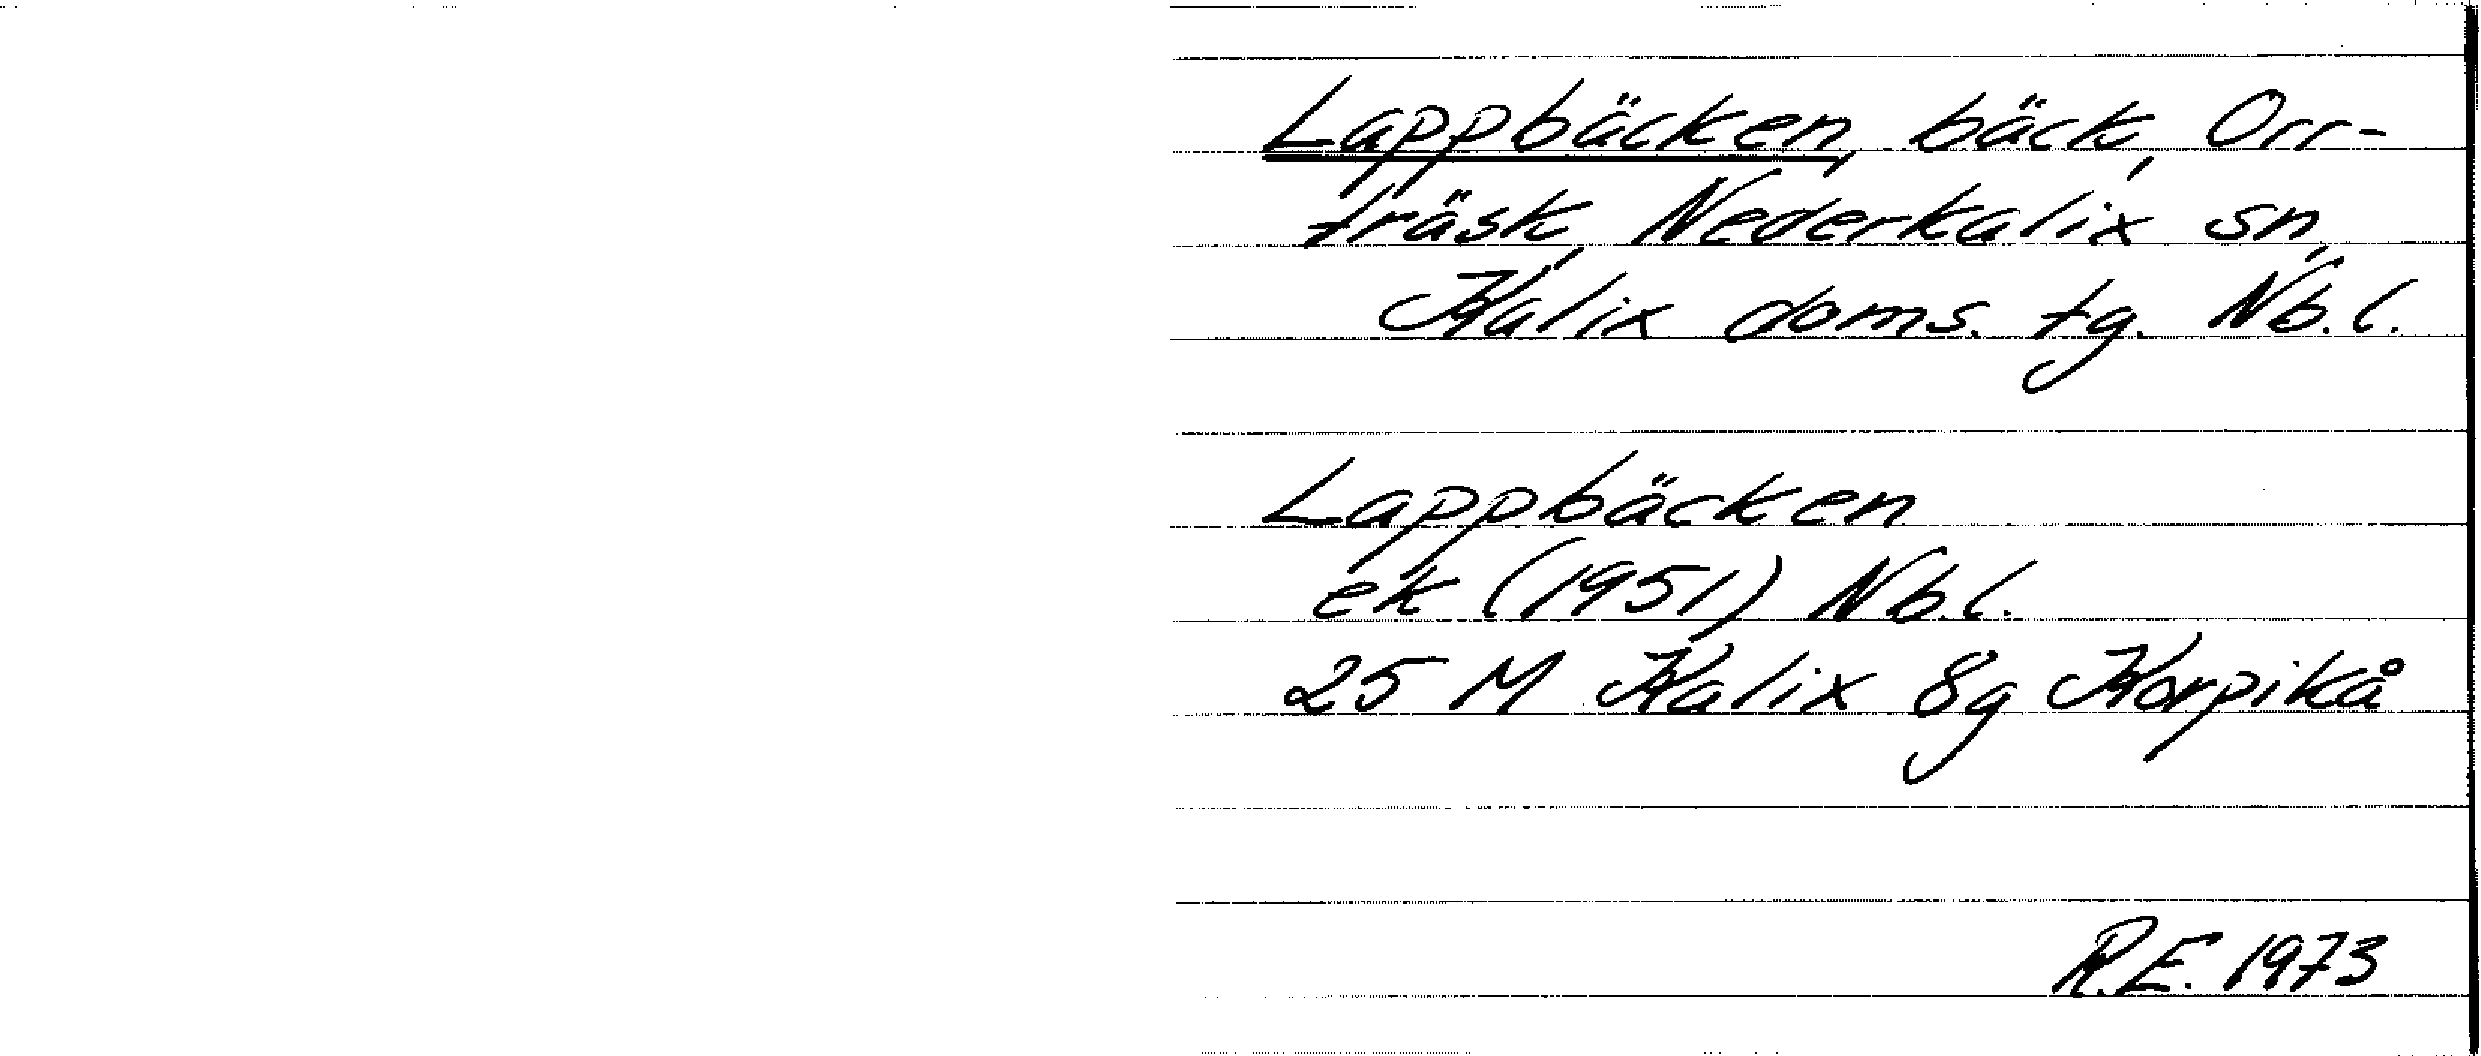 Lappbäcken, bäck, Orr-
träsk, Nederkalix sn,
Kalix doms. tg. Nb.l.
Lappbäcken
ek (1951) Nb.l.
25 M Kalix 8g Korpikå
R.E. 1973